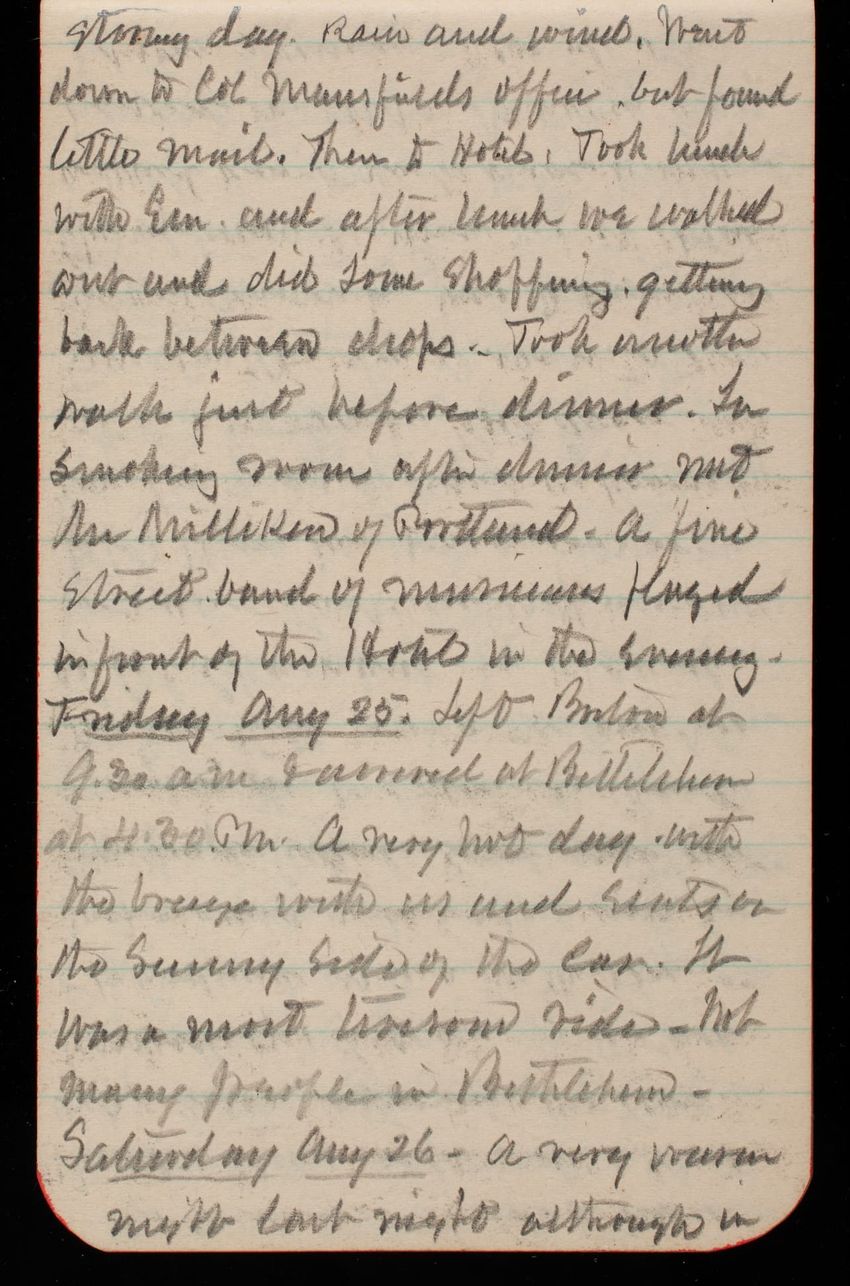 Stormy day. Rain and wind. Went
down to Col Mansfields office. but found
little mail. Then to Hotel. Took lunch
with Em. and after lunch we walked
out and did some shopping. getting
back between drops. Took another
walk just before dinner. In
smoking room after dinner met
Mr Milliken of Portland. A fine
Street band of musicians played
in front of the Hotel in the evening.
Friday Aug 25. Left Boston at
9.30 a m & arrived at Bethlehem
at 4.30. P.M. A very hot day. with
the breeze with us and seats on
the Sunny Side of the Car. It
was a most tiresome ride - Not
many people in Bethlehem -
Saturday Aug 26 - A very warm
night last night although in